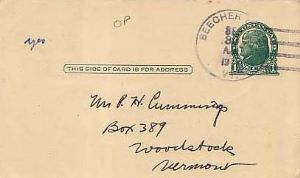 OP
yes
BEECHER
THIS SIDE OF CARD IS FOR ADDRESS
Mr P. H. Cummings
Box 389
Woodstock
Vermont